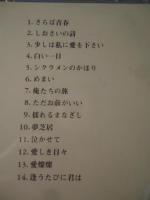 1.さらば青春
2.しおさいの詩
3.少しは私に愛を下さい
4.白い一日
5.シクラメンのかほり
6.めまい
7.俺たちの旅
8.ただお前がいい
9.揺れるまなざし
10.夢芝居
11.泣かせて
12.愛しき日々
13.愛燦燦
14.逢うたびに君は